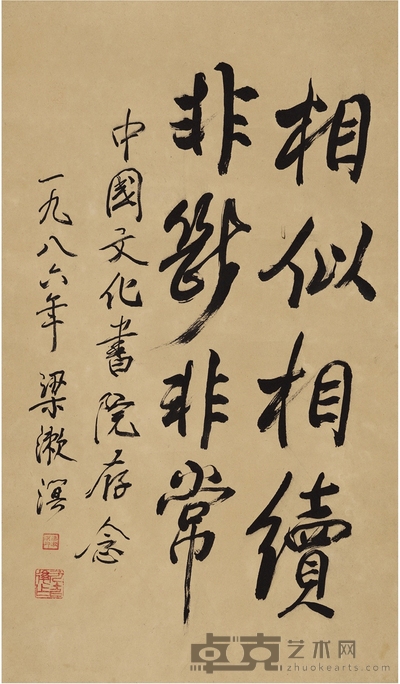 相似相續
非斷非常
中國文化書院存念
一九八六年 梁漱溟
卓克艺术网
zhuokearts.com